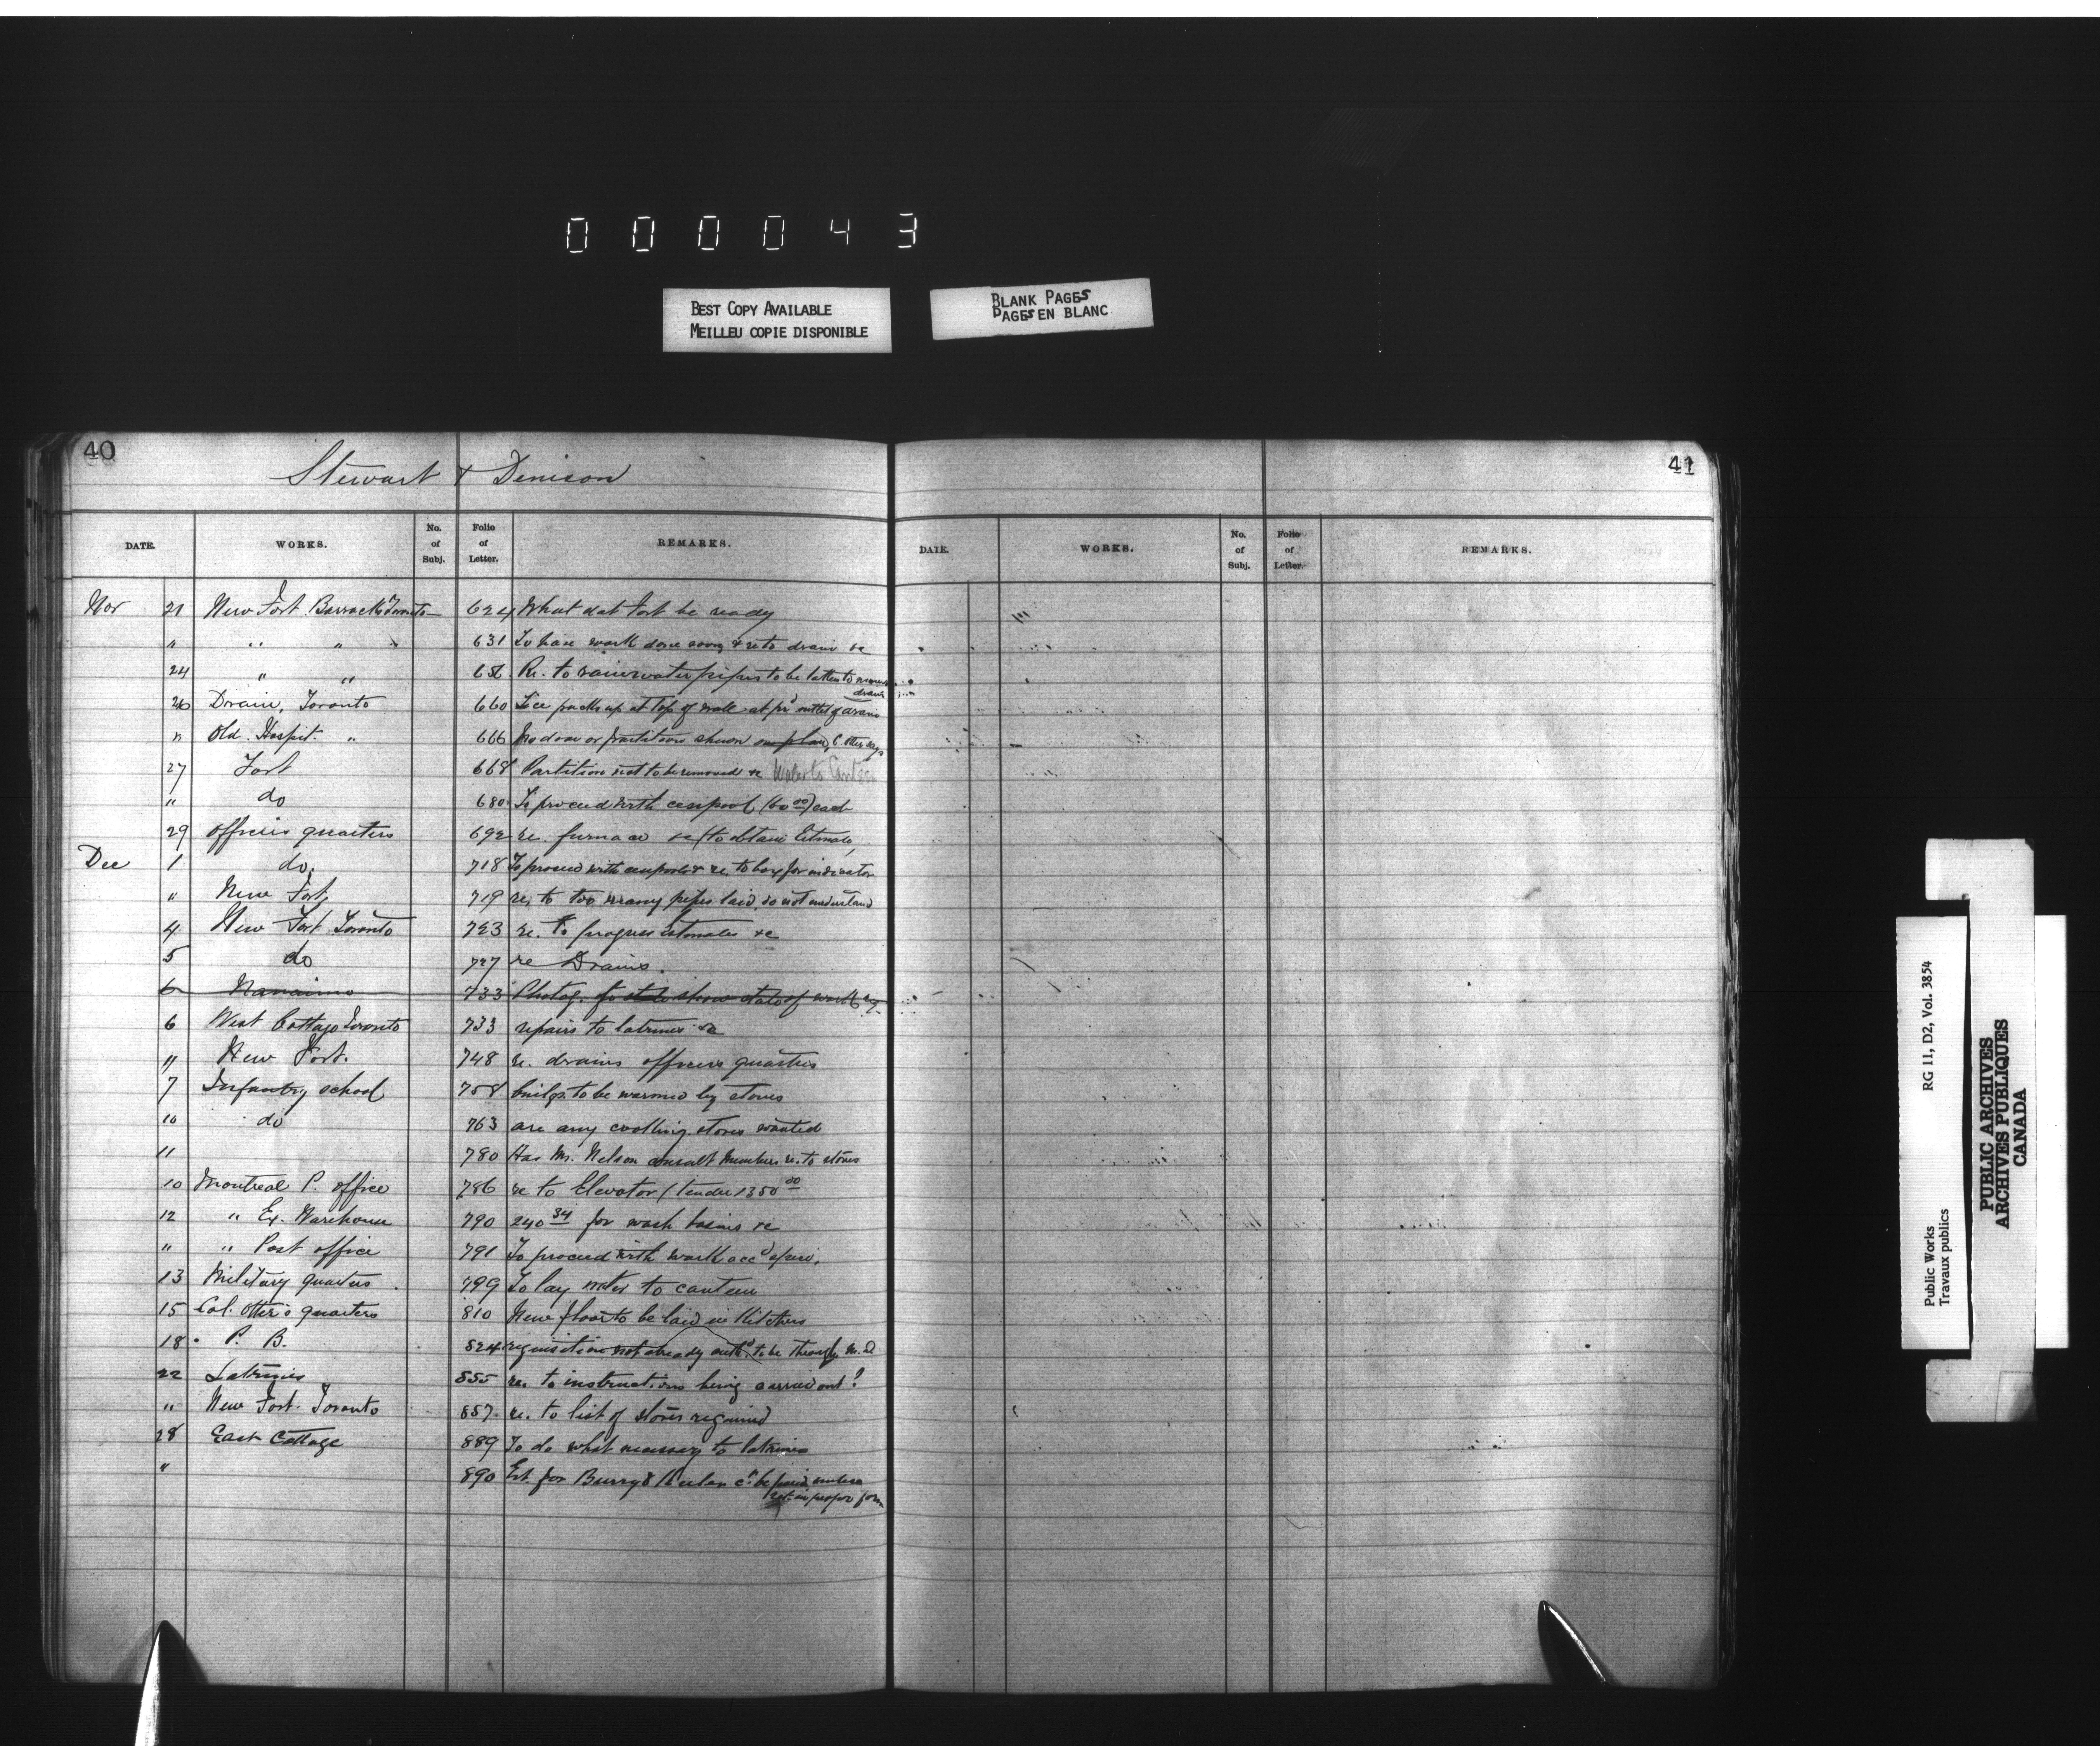 0 0 0 0 4 3
BEST COPY AVAILABLE
MEILLEU COPIE DISPONIBLE
BLANK PAGES
PAGES EN BLANC
40
Stewart & Denison
DATE. WORKS. No. of Subj. Folio of Letter. REMARKS.
Nov 21 New Fort Barracks Toronto 624 What dat Fort be ready
" " " " 631 To have work done soon & re to drain &c
24 " " 656 Re. to rainwater pipes to be taken to
drain
26 Drain, Toronto 660 Ice packs up at top of wall at outlet of drain
" Old Hospit. " 666 No door or partition shown on plan,
27 Fort 668 Partition not to be removed &c
" do 680 To proceed with cesspool (60 00) each
29 officers quarters 692 re. furnace &c (to obtain Estimate,
Dec 1 do. 718 To proceed with cesspool & re. to box for indicator
" New Fort, 719 re. to too many pipes laid, do not understand
4 New Fort Toronto 723 re. to progress Estimates &c
5 do 727 re Drains.
6 Nanaimo 733 Photog. to show state of work
6 West Cottage Toronto 733 repairs to latrines &c
" New Fort. 748 re. drains officers quarters
7 Infantry school 758 buildgs. to be warmed by stoves
10 do 763 are any cooking stoves wanted
11 780 Has Mr. Nelson consult re. to stoves
10 Montreal P. office 786 re to Elevator (tender 1350 00
12 " Ex. Warehouse 790 240 34 for wash basins &c
" " Post office 791 To proceed with work accd
13 Military quarters 799 To lay water to canteen
15 Col. Otter's quarters 810 New floor to be laid in Kitchen
18 P. B. 824 requisition not already authd to be through M. D
22 Latrines 855 re. to instructions being carried out?
" New Fort Toronto 857 re. to list of stoves required
28 East Cottage 889 To do what necessary to latrines
" 890 Est. for Burry & be paid unless
not in proper form
41
DATE. WORKS. No. of Subj. Folio of Letter. REMARKS.
Public Works
Travaux publics
RG 11, D2, Vol. 3854
PUBLIC ARCHIVES
ARCHIVES PUBLIQUES
CANADA